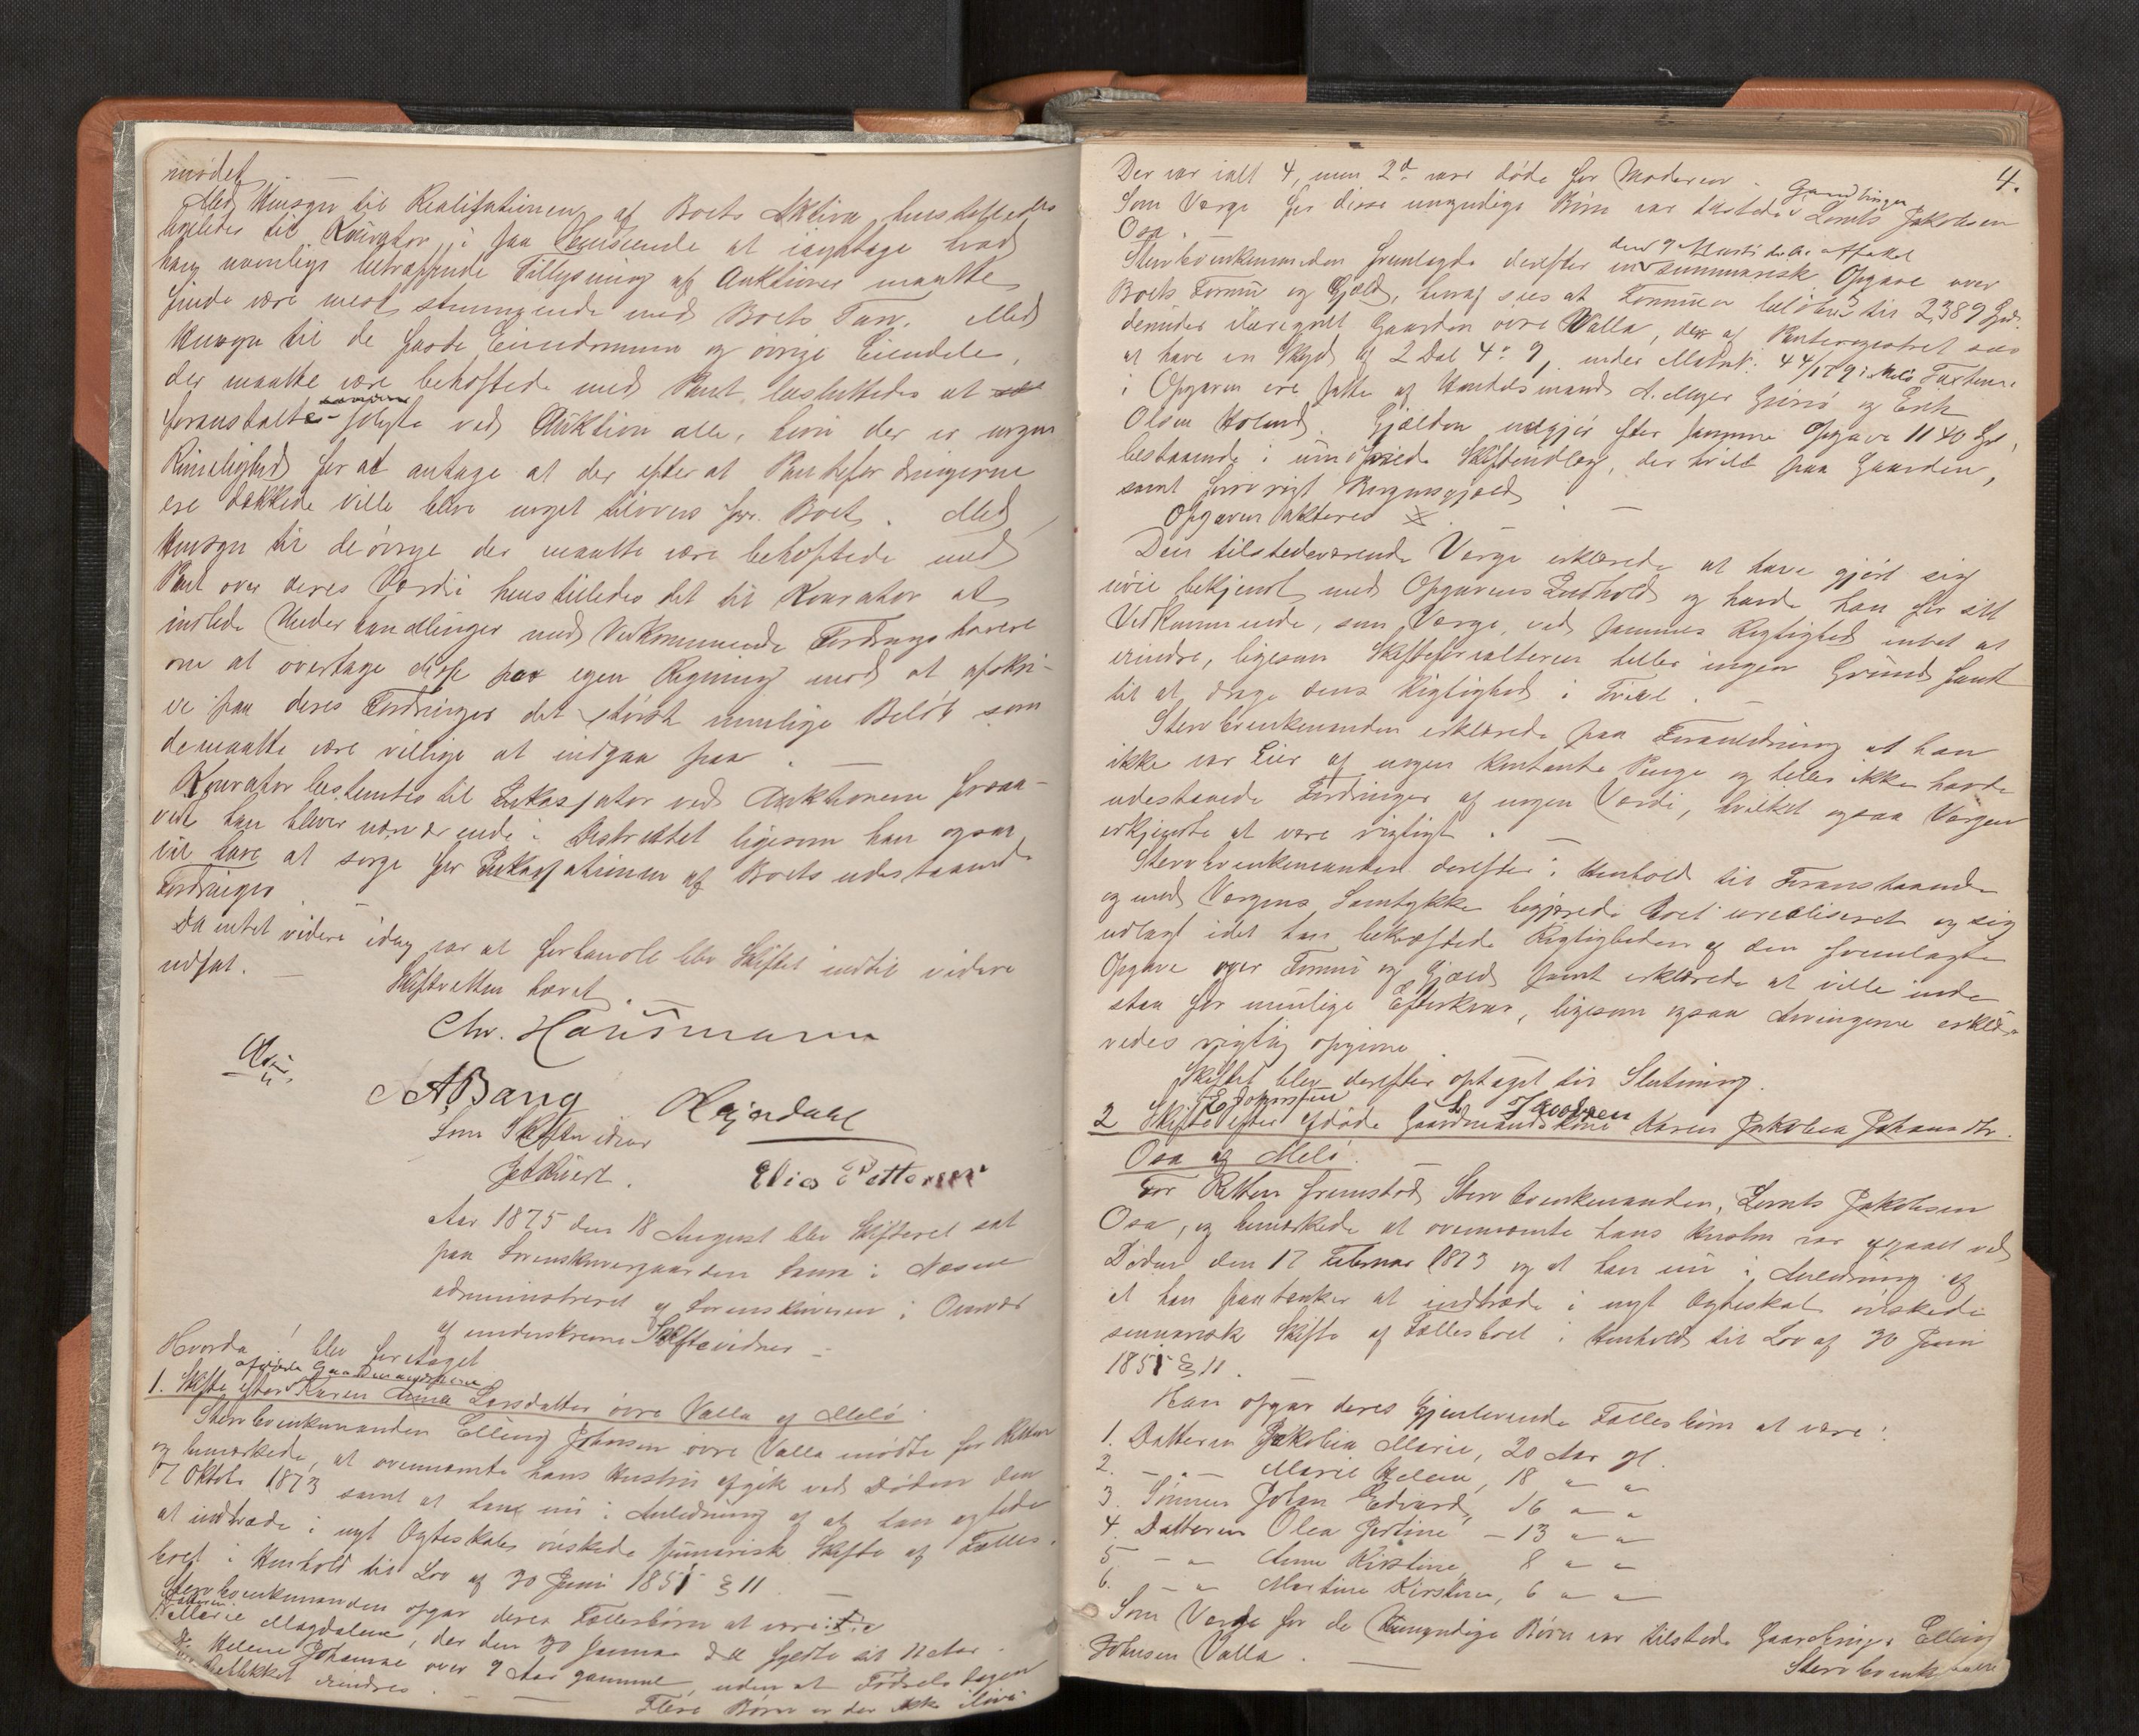 mødet.
Med Hensyn til Realisationen af Boets Aktiva henstilledes
ligeledes til Kurator i paa Henseende at iagttage hvad
han navnlig betræffende Tillysning af Auktioner maatte
finde være mest stemmende med Boets Tarv. Med
Hensyn til de faste Eiendomme og øvrige Eiendele,
der maatte være behæftede med Pant, besluttedes at
foranstalte solgte ved Auktion alle, hvor der er nogen
Rimelighed for at antage at der efter at Pantefordringerne
ere dækkede ville blive noget tilovers for Boet. Med
Hensyn til de øvrige der maatte være behæftede med
Pant over deres Værdi henstilledes det til Kurator at
indlede Underhandlinger med Vedkommende Fordringshavere
om at overtage disse paa egen Regning mod at afskri-
ve paa deres Fordringer det størst mulige Beløb som
de maatte være villige at indgaa paa. —
Kurator bestemtes til Inkassator ved Auktionen forsaa-
vidt han bliver nærværende i Distriktet ligesom han ogsaa
vil have at sørge for Inkassationen af Boets udestaaende
Fordringer. —
Da intet videre idag var at forhandle blev Skiftet indtil videre
udsat. —
Skifteretten hævet.
Chr. Hausmann
A Bang
Hajerdahl
Som Skiftevidner
Elias Pettersen
Aar 1875 den 18 August blev Skifteret sat
paa Sorenskrivergaarden i Næsne
administreret af Sorenskriveren i Overvær
af underskrevne Skiftevidner —
Hvorda! blev foretaget
afdøde Gaardmandskone
1. Skifte efter Karen Anna Larsdatter øvre Valla af Melø
Stervboenkemanden Elling Johnsen øvre Valla mødte for Retten
og bemærkede, at ovennævnte hans Hustru afgik ved Døden den
7 Oktobr 1873 samt at han nu i Anledning af at han agtede
at indtræde i nyt Ægteskab ønskede summarisk Skifte af Fælles-
boet i Henhold til Lov af 30 Juni 1851 § 11. —
Stervboenkemanden opgav deres Fællesbørn at være:
Datteren
1. Marie Magdalene, der den 30 Januar fyldte sit Aar
Helene Johanne over 9 Aar gammel, uden at Fødselsdagen
erindres. —
Flere Børn er der ikke ilive
4.
Der var ialt 4, men 2de vare døde før Moderen.
Gaardbruger
Som Værge for disse umyndige Børn var tilstede Lornts Jakobsen
Osa. —
Stervboenkemanden fremlagde derefter en summarisk Opgave over
Boets Formue og Gjæld, hvoraf sees at Formuen beløber til 2,389 Spd.
deriblandt iberegnet Gaarden øvre Valla, der af Panteregistret sees
at have en Skyld af 2 Dal 4 ort 9, under Matr.
i Opgaven ere Takst af Handelsmand A. Meyer og Erik
Olsen Holand. Gjælden udgjør efter samme Opgave 1140 Spd,
bestaaende i Skifteudlæg, der hviler paa Gaarden,
samt forøvrigt Borgensgjæld
Opgaven akteres X. — —
Den tilstedeværende Værge erklærede at have gjort sig
nøie bekjendt med Opgavens Indhold og havde han for sit
Vedkommende, som Værge, ved sammes Rigtighed intet at
erindre, ligesom Skifteforvalteren heller ingen Grund fandt
til at drage dens Rigtighed i Tvivl. —
Stervboenkemanden erklærede paa Foranledning at han
ikke var Eier af nogen kontante Penge og heller ikke havde
udestaaende Fordringer af nogen Værdi, hvilket ogsaa Værgen
erkjendte at være rigtigt. —
Stervboenkemanden derefter i Henhold til Foranstaaende
og med Værgens Samtykke begjærede Boet urealiseret og sig
udlagt idet han bekræftede Rigtigheden af den fremlagte
Opgave over Formue og Gjæld samt erklærede at ville inde
staa for mulige Efterkrav, ligesom ogsaa Arvingerne erklæ-
redes rigtig opgivne
Skiftet blev derefter optaget til Slutning.
E Johnsen L Jacobsen
2 Skifte efter afdøde Gaardmandskone Karen Jakobea Johansdtr.
Osa af Melø. —
For Retten fremstod Stervboenkemanden, Lornts Jakobsen
Osa, og bemærkede at ovennævnte hans Hustru var afgaaet ved
Døden den 17 Februar 1873 og at han nu i Anledning af
at han paatænker at indtræde i nyt Ægteskab ønskede
summarisk Skifte af Fællesboet i Henhold til Lov af 30 Juni
1851 § 11.
Han opgav deres gjenlevende Fællesbørn at være:
1. Datteren Jakobea Marie, 20 Aar gl.
2. — " — Marie Helene, 18 " "
3. Sønnen Johan Edvard, 16 " "
4. Datteren Olea Jertine — 13 " "
5 — " Anne Kirstine, 8 " "
6. — " Martine Kirstine, 6 " "
Som Værge for de umyndige Børn var tilstede Gaardbruger Elling
Johnsen Valla. —
Stervboenke